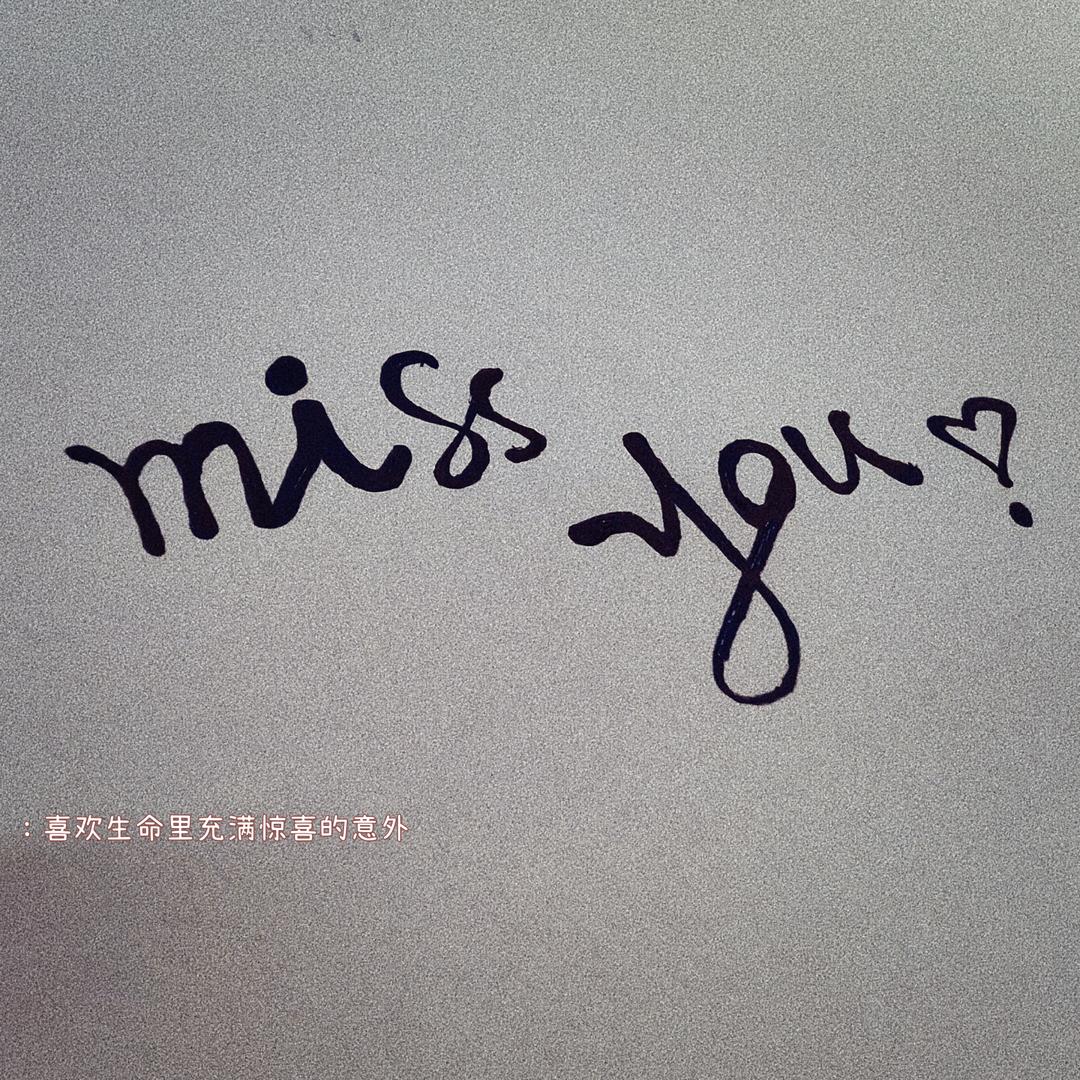 miss you
：喜欢生命里充满惊喜的意外